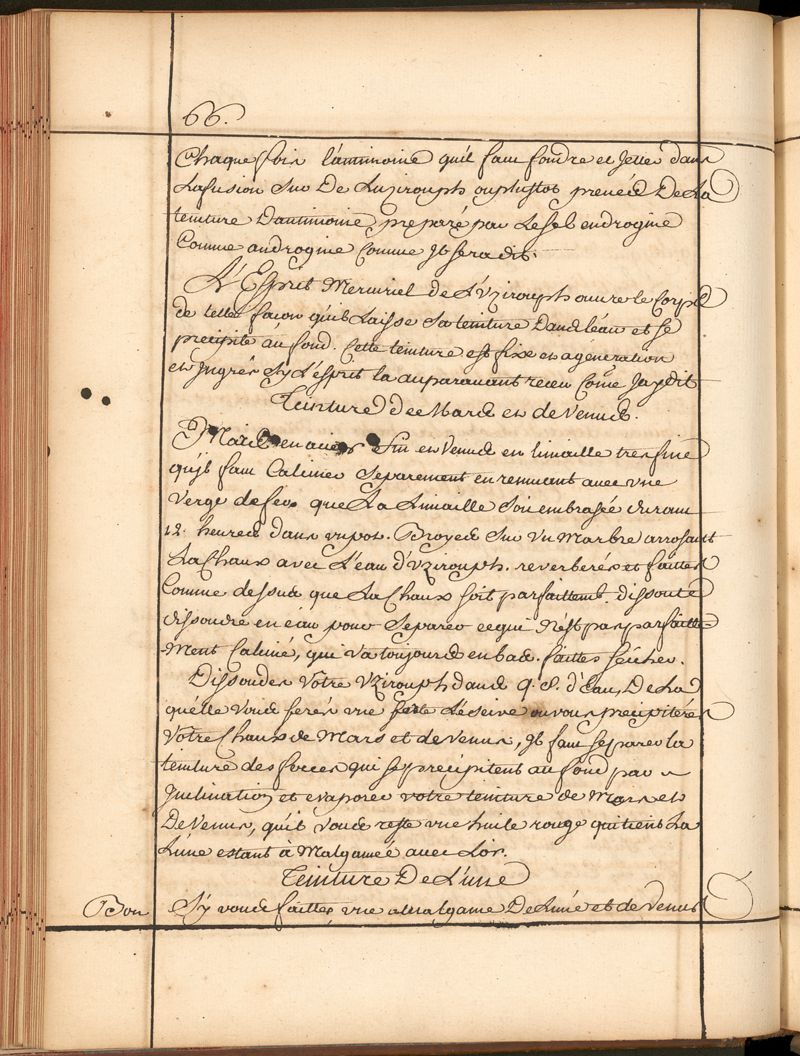 66.
Chaque fois l'antimoine qu'il faut fondre et Jetter dans
La fusion Suc De Luzirouph ouplustos prenéz De La
teinture D'antimoine, preparé par Lesel endrogine
Comme androgine Comme Jl sera dit.
L'Esprit Mercuriel de L'Vzirouph ouvre le Corps
de telle façon qu'il Laisse Sa teinture Dans l'eau et se
precipite au fond. Cette teinture est fixe en agénération
en Jngrés Sy L'esprit la auparavant receu Coñe Jay dit
Teinture De Mars et de Venus.
Mars en acier fin en Venus en limaille tres fine
qu'jl faut Calciner Separement en remuant avec vne
Verge de fer que La Limaille Soit embrasée durant
12. heures dans vn pot. Broyés Sur Vn Marbre arrosant
La Chaux avec L'eau d'Vzirouph. reverberés et faittes
Comme dessus que La Chaux soit parfaittemt. dissoute
dissoudre en eau pour Separer ce qui N'est pas parfaitte-
Ment Calciné, qui Va toujours en bas. faittes secher.
Dissoudes Votre Vzirouph dans q. S. d'Eau, De La
quélle Vous ferés vne forte Léscive ou vous precipitéres
Votre Chaux de Mars et de Venus, Jl faut separer la
teinture des feces qui se precipitent au fond par
Jnclination et evaporer votre teinture de Mars et
De Venus, qu'il Vous reste vne huile rouge qui tient La
Lune estant à Malgamée avec L'or.
Teinture De L'une
Bon Sy vous faittes vne amalgame De Lune et de Venus